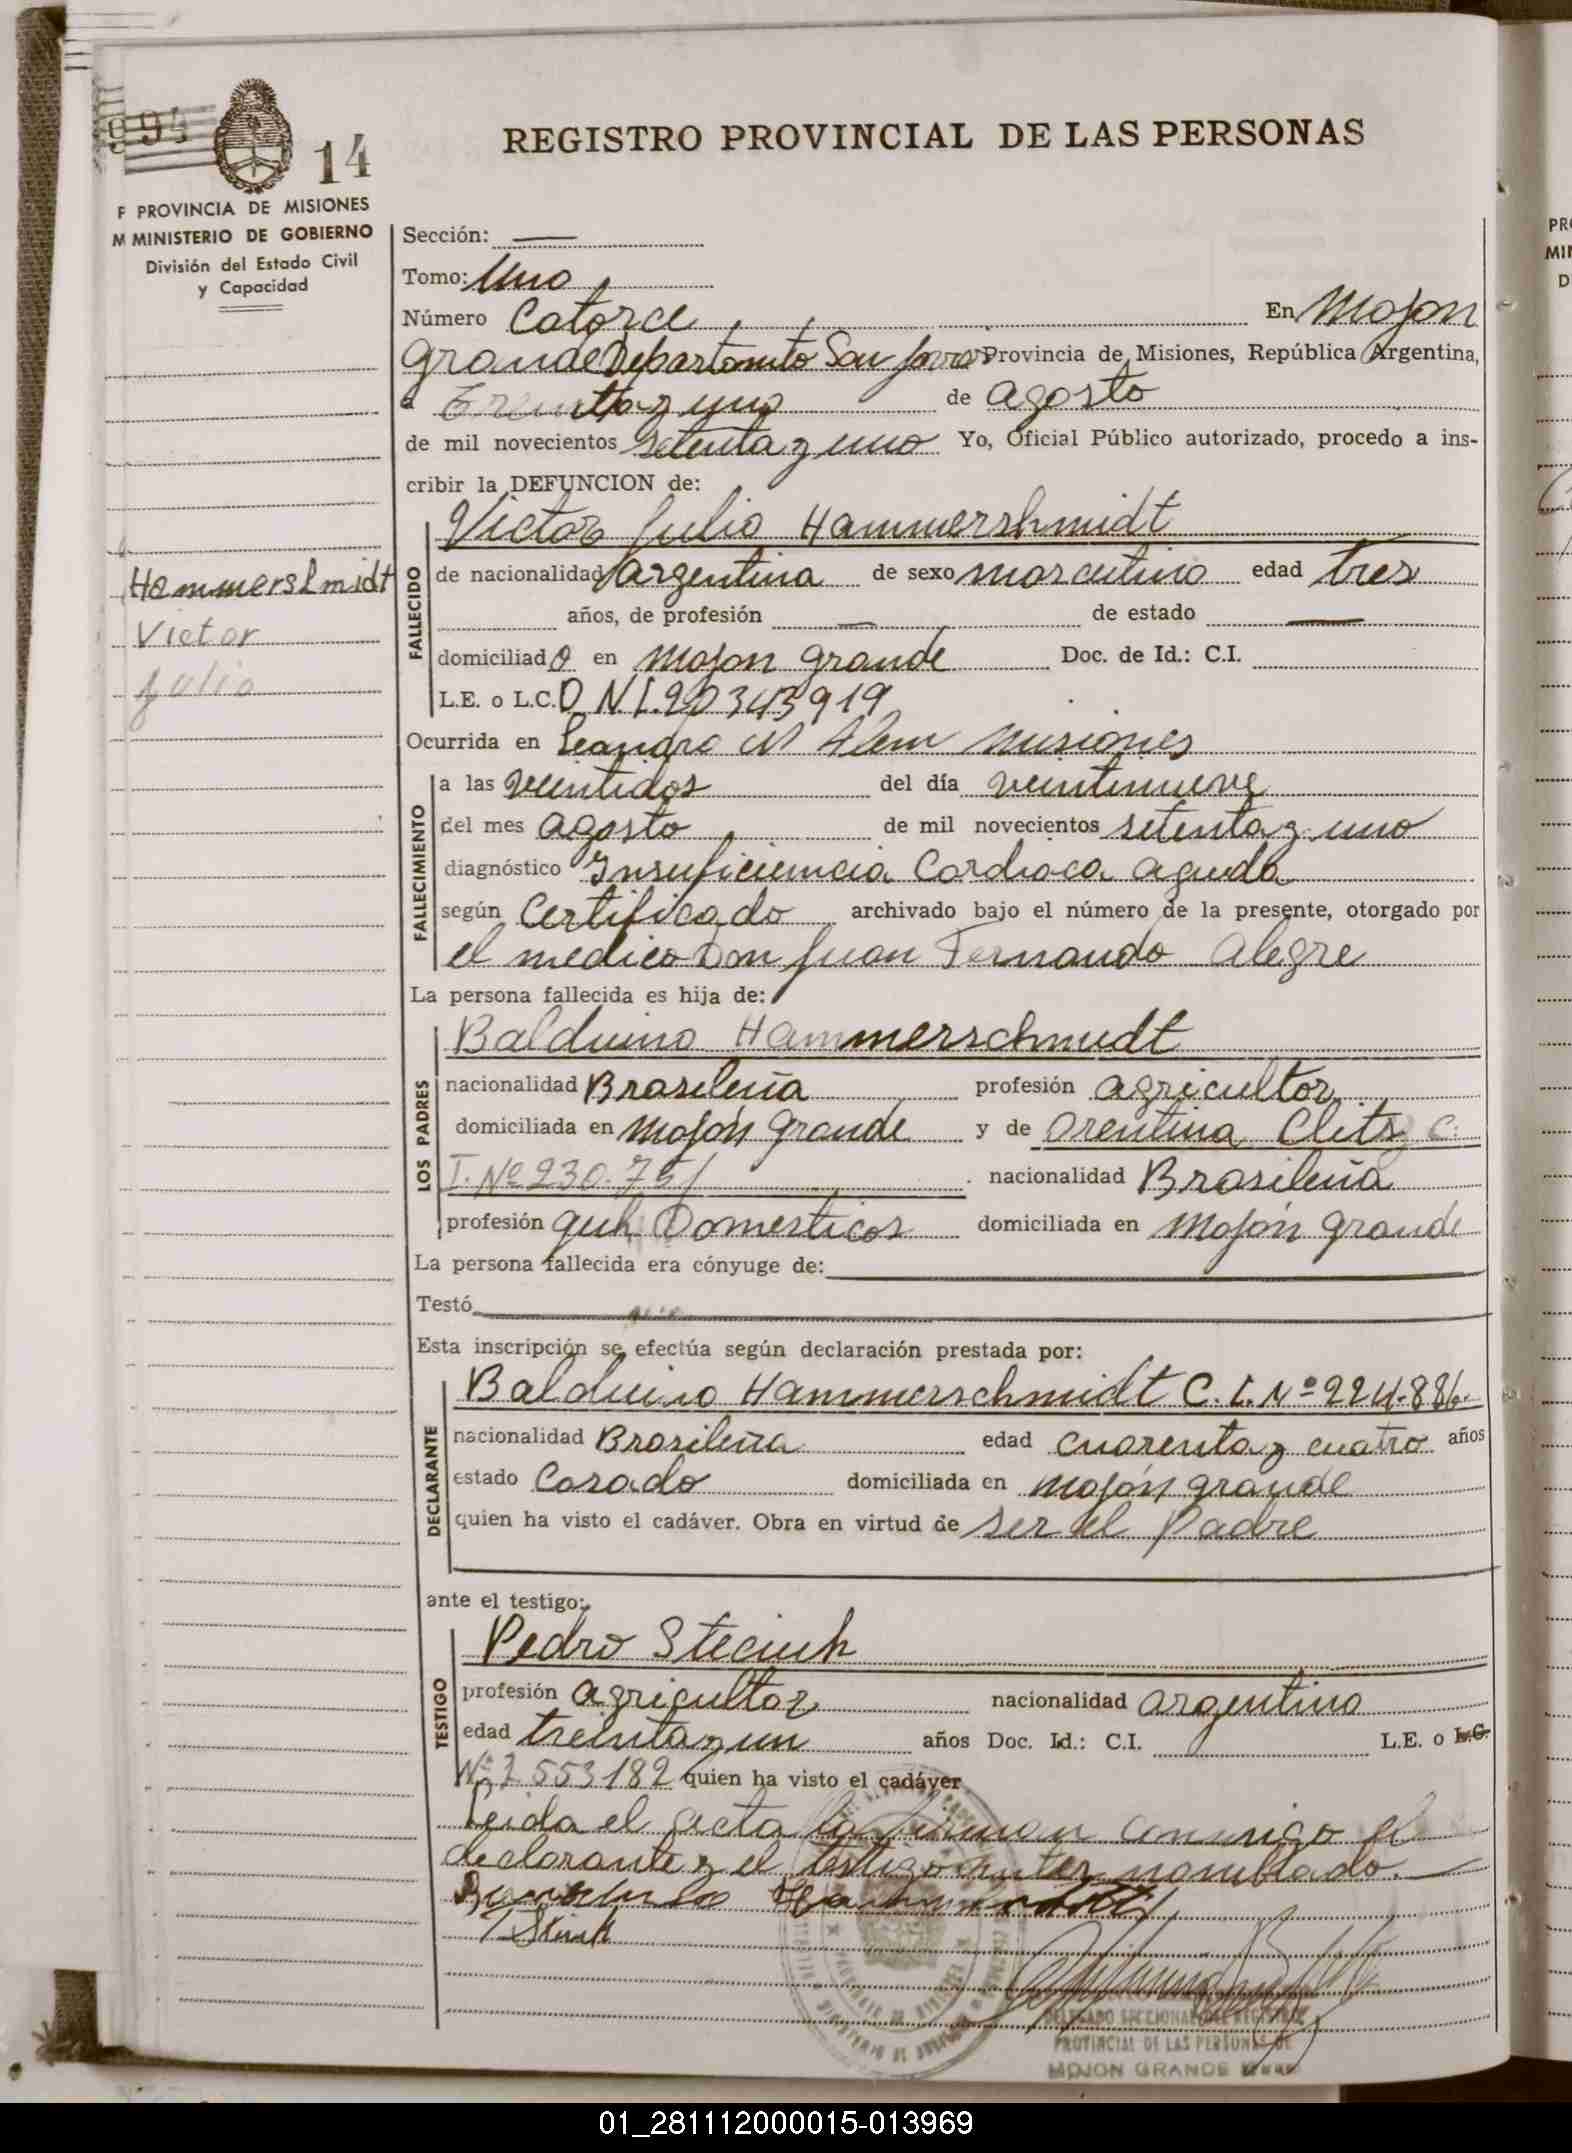 994
14
REGISTRO PROVINCIAL DE LAS PERSONAS
PROVINCIA DE MISIONES
MINISTERIO DE GOBIERNO
División del Estado Civil
y Capacidad
Sección: —
Tomo: Uno
Número Catorce En Mojon
Grande Departamento San Javier Provincia de Misiones, República Argentina,
a Treinta y uno de agosto
de mil novecientos setenta y uno Yo, Oficial Público autorizado, procedo a ins-
cribir la DEFUNCION de:
Hammershmidt
Victor
Julio
FALLECIDO
Victor Julio Hammershmidt
de nacionalidad Argentina de sexo masculino edad tres
años, de profesión — de estado —
domiciliado en Mojon Grande Doc. de Id.: C.I.
L.E. o L.C. D.N.I. 20343919
Ocurrida en Leandro N Alem Misiones
FALLECIMIENTO
a las veintidos del día veintinueve
del mes agosto de mil novecientos setenta y uno
diagnóstico Insuficiencia Cardiaca aguda
según Certificado archivado bajo el número de la presente, otorgado por
el medico Don Juan Fernando Alegre
La persona fallecida es hija de:
LOS PADRES
Balduino Hammerschmidt
nacionalidad Brasileña profesión agricultor
domiciliada en Mojón Grande y de Orentina Clits C.
I. Nº 230.751 nacionalidad Brasileña
profesión queh. Domesticos domiciliada en Mojón Grande
La persona fallecida era cónyuge de:
Testó
Esta inscripción se efectúa según declaración prestada por:
DECLARANTE
Balduino Hammerschmidt C.I. Nº 224.886.
nacionalidad Brasileña edad cuarenta y cuatro años
estado Casado domiciliada en Mojón Grande
quien ha visto el cadáver. Obra en virtud de ser el Padre
ante el testigo:
TESTIGO
Pedro Steciuk
profesión agricultor nacionalidad argentino
edad treinta y un años Doc. Id.: C.I. L.E. o L.C.
Nº 7553182 quien ha visto el cadáver
Leida el acta la firman conmigo el
declarante y el testigo antes nombrado.
DELEGADO SECCIONAL DEL REGISTRO
PROVINCIAL DE LAS PERSONAS DE
MOJON GRANDE
01_281112000015-013969